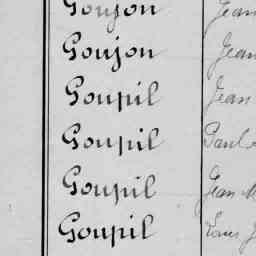 Goujon Jean
Goujon Jean
Goupil Jean
Goupil Paul
Goupil Jean M
Goupil Louis J